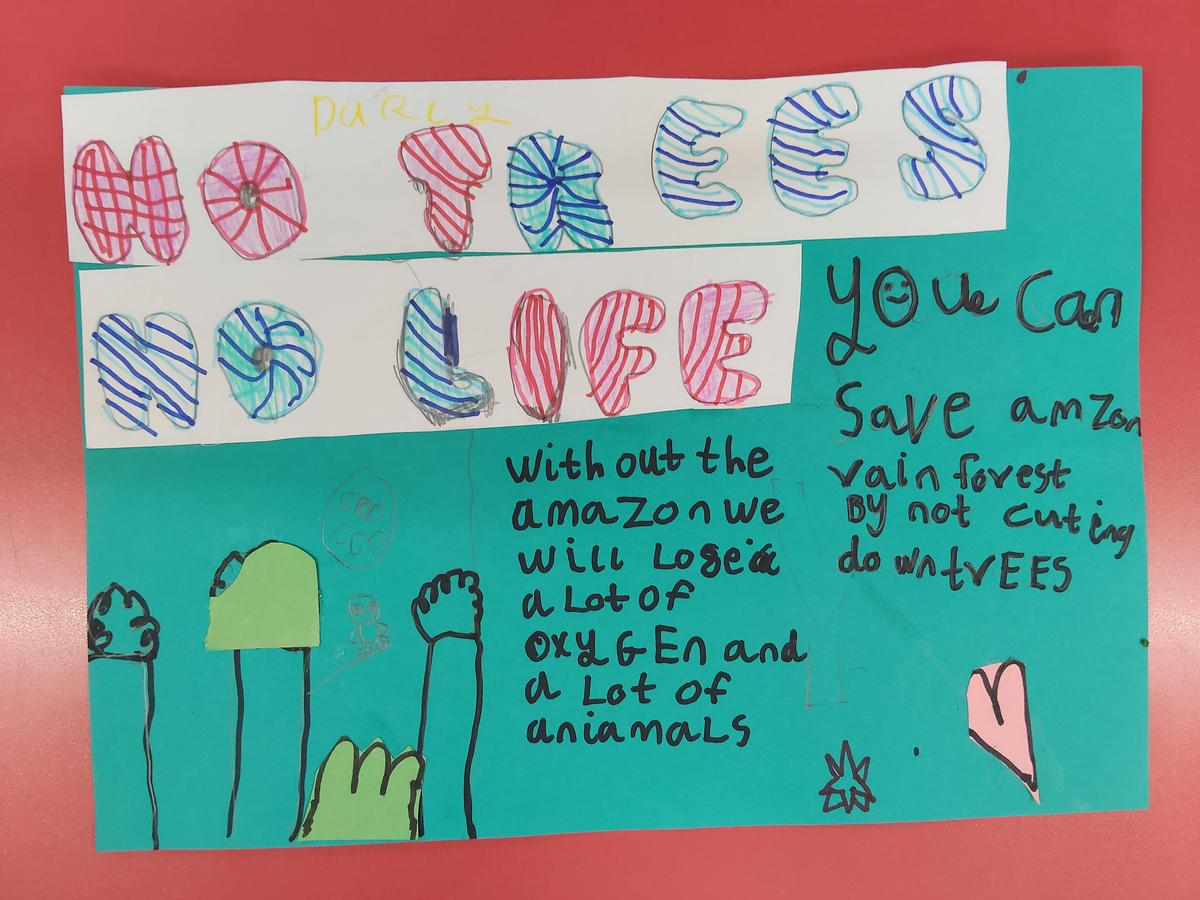 DURLY
NO TREES
NO LIFE
You Can
Save amazon
rain forest
By not cuting
down trEES
with out the
amazon we
will Lose
a Lot of
oxyGEn and
a Lot of
aniamaLs